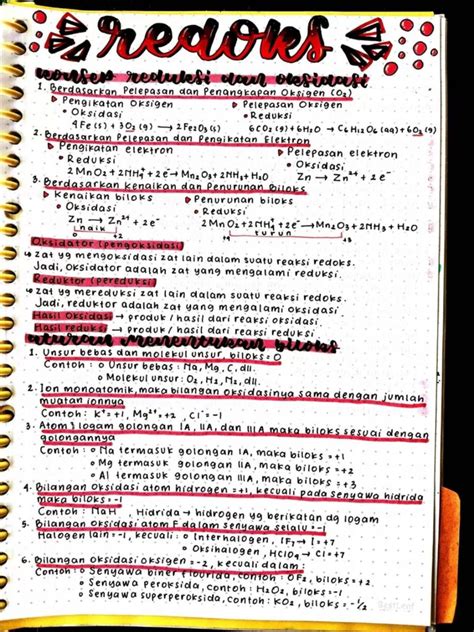 redoks
konsep reduksi dan oksidasi
1. Berdasarkan Pelepasan dan Penangkapan Oksigen (O₂)
▸ Pengikatan Oksigen ▸ Pelepasan Oksigen
• Oksidasi • Reduksi
4Fe(s) + 3O₂(g) → 2Fe₂O₃(s) 6CO₂(g) + 6H₂O → C₆H₁₂O₆(aq) + 6O₂(g)
2. Berdasarkan Pelepasan dan Pengikatan Elektron
▸ Pengikatan elektron ▸ Pelepasan elektron
• Reduksi • Oksidasi
2MnO₂ + 2NH₄⁺ + 2e⁻ → Mn₂O₃ + 2NH₃ + H₂O Zn → Zn²⁺ + 2e⁻
3. Berdasarkan Kenaikan dan Penurunan Biloks
▸ Kenaikan biloks ▸ Penurunan biloks
• Oksidasi • Reduksi
Zn → Zn²⁺ + 2e⁻ 2MnO₂ + 2NH₄⁺ + 2e⁻ → Mn₂O₃ + 2NH₃ + H₂O
0 naik +2 +4 turun +3
Oksidator (pengoksidasi)
↳ zat yg mengoksidasi zat lain dalam suatu reaksi redoks.
Jadi, oksidator adalah zat yang mengalami reduksi.
Reduktor (pereduksi)
↳ zat yg mereduksi zat lain dalam suatu reaksi redoks.
Jadi, reduktor adalah zat yang mengalami oksidasi.
Hasil Oksidasi → produk / hasil dari reaksi oksidasi.
Hasil reduksi → produk / hasil dari reaksi reduksi.
aturan menentukan biloks
1. Unsur bebas dan molekul unsur, biloks = 0
Contoh : ○ Unsur bebas : Na, Mg, C, dll.
○ Molekul unsur : O₂, H₂, N₂, dll.
2. Ion monoatomik, maka bilangan oksidasinya sama dengan jumlah
muatan ionnya
Contoh : K⁺ = +1, Mg²⁺ = +2, Cl⁻ = -1
3. Atom² logam golongan IA, IIA, dan IIIA maka biloks sesuai dengan
golongannya
Contoh : ○ Na termasuk golongan IA, maka biloks = +1
○ Mg termasuk golongan IIA, maka biloks = +2
○ Al termasuk golongan IIIA, maka biloks = +3
4. Bilangan oksidasi atom hidrogen = +1, kecuali pada senyawa hidrida
maka biloks = -1
Contoh : NaH, Hidrida → hidrogen yg berikatan dg logam
5. Bilangan oksidasi atom F dalam senyawa selalu = -1
Halogen lain = -1, kecuali : ○ Interhalogen, IF₇ → I = +7
○ Oksihalogen, HClO₄ → Cl = +7
6. Bilangan oksidasi oksigen = -2, kecuali dalam :
Contoh : ○ Senyawa biner flourida, contoh : OF₂, biloks = +2.
○ Senyawa peroksida, contoh : H₂O₂, biloks = -1.
○ Senyawa superperoksida, contoh : KO₂, biloks = -½.